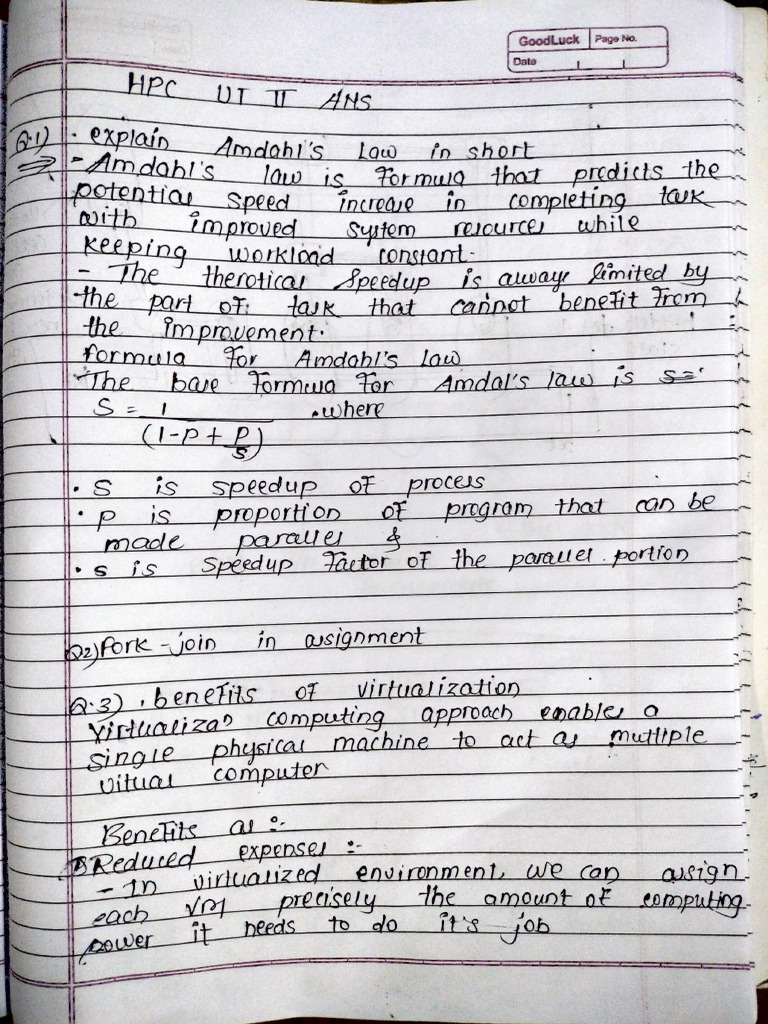 GoodLuck Page No.
Date
HPC UT II ANS
Q.1) • explain Amdahl's Law in short
⇒ - Amdahl's law is formula that predicts the
potential speed increase in completing task
with improved system resources while
keeping workload constant.
- The therotical speedup is always limited by
the part of task that cannot benefit from
the improvement.
formula for Amdahl's Law
The base formula for Amdal's law is s=
S = 1 / (1-p + p/s) . where
• S is speedup of process
• p is proportion of program that can be
made parallel &
• s is speedup factor of the parallel portion
Q2) fork-join in assignment
Q.3) . benefits of virtualization
virtualizan computing approach enables a
single physical machine to act as multiple
vitual computer
Benefits as :-
1) Reduced expenses :-
- In virtualized environment, we can assign
each VM precisely the amount of computing
power it needs to do it's job